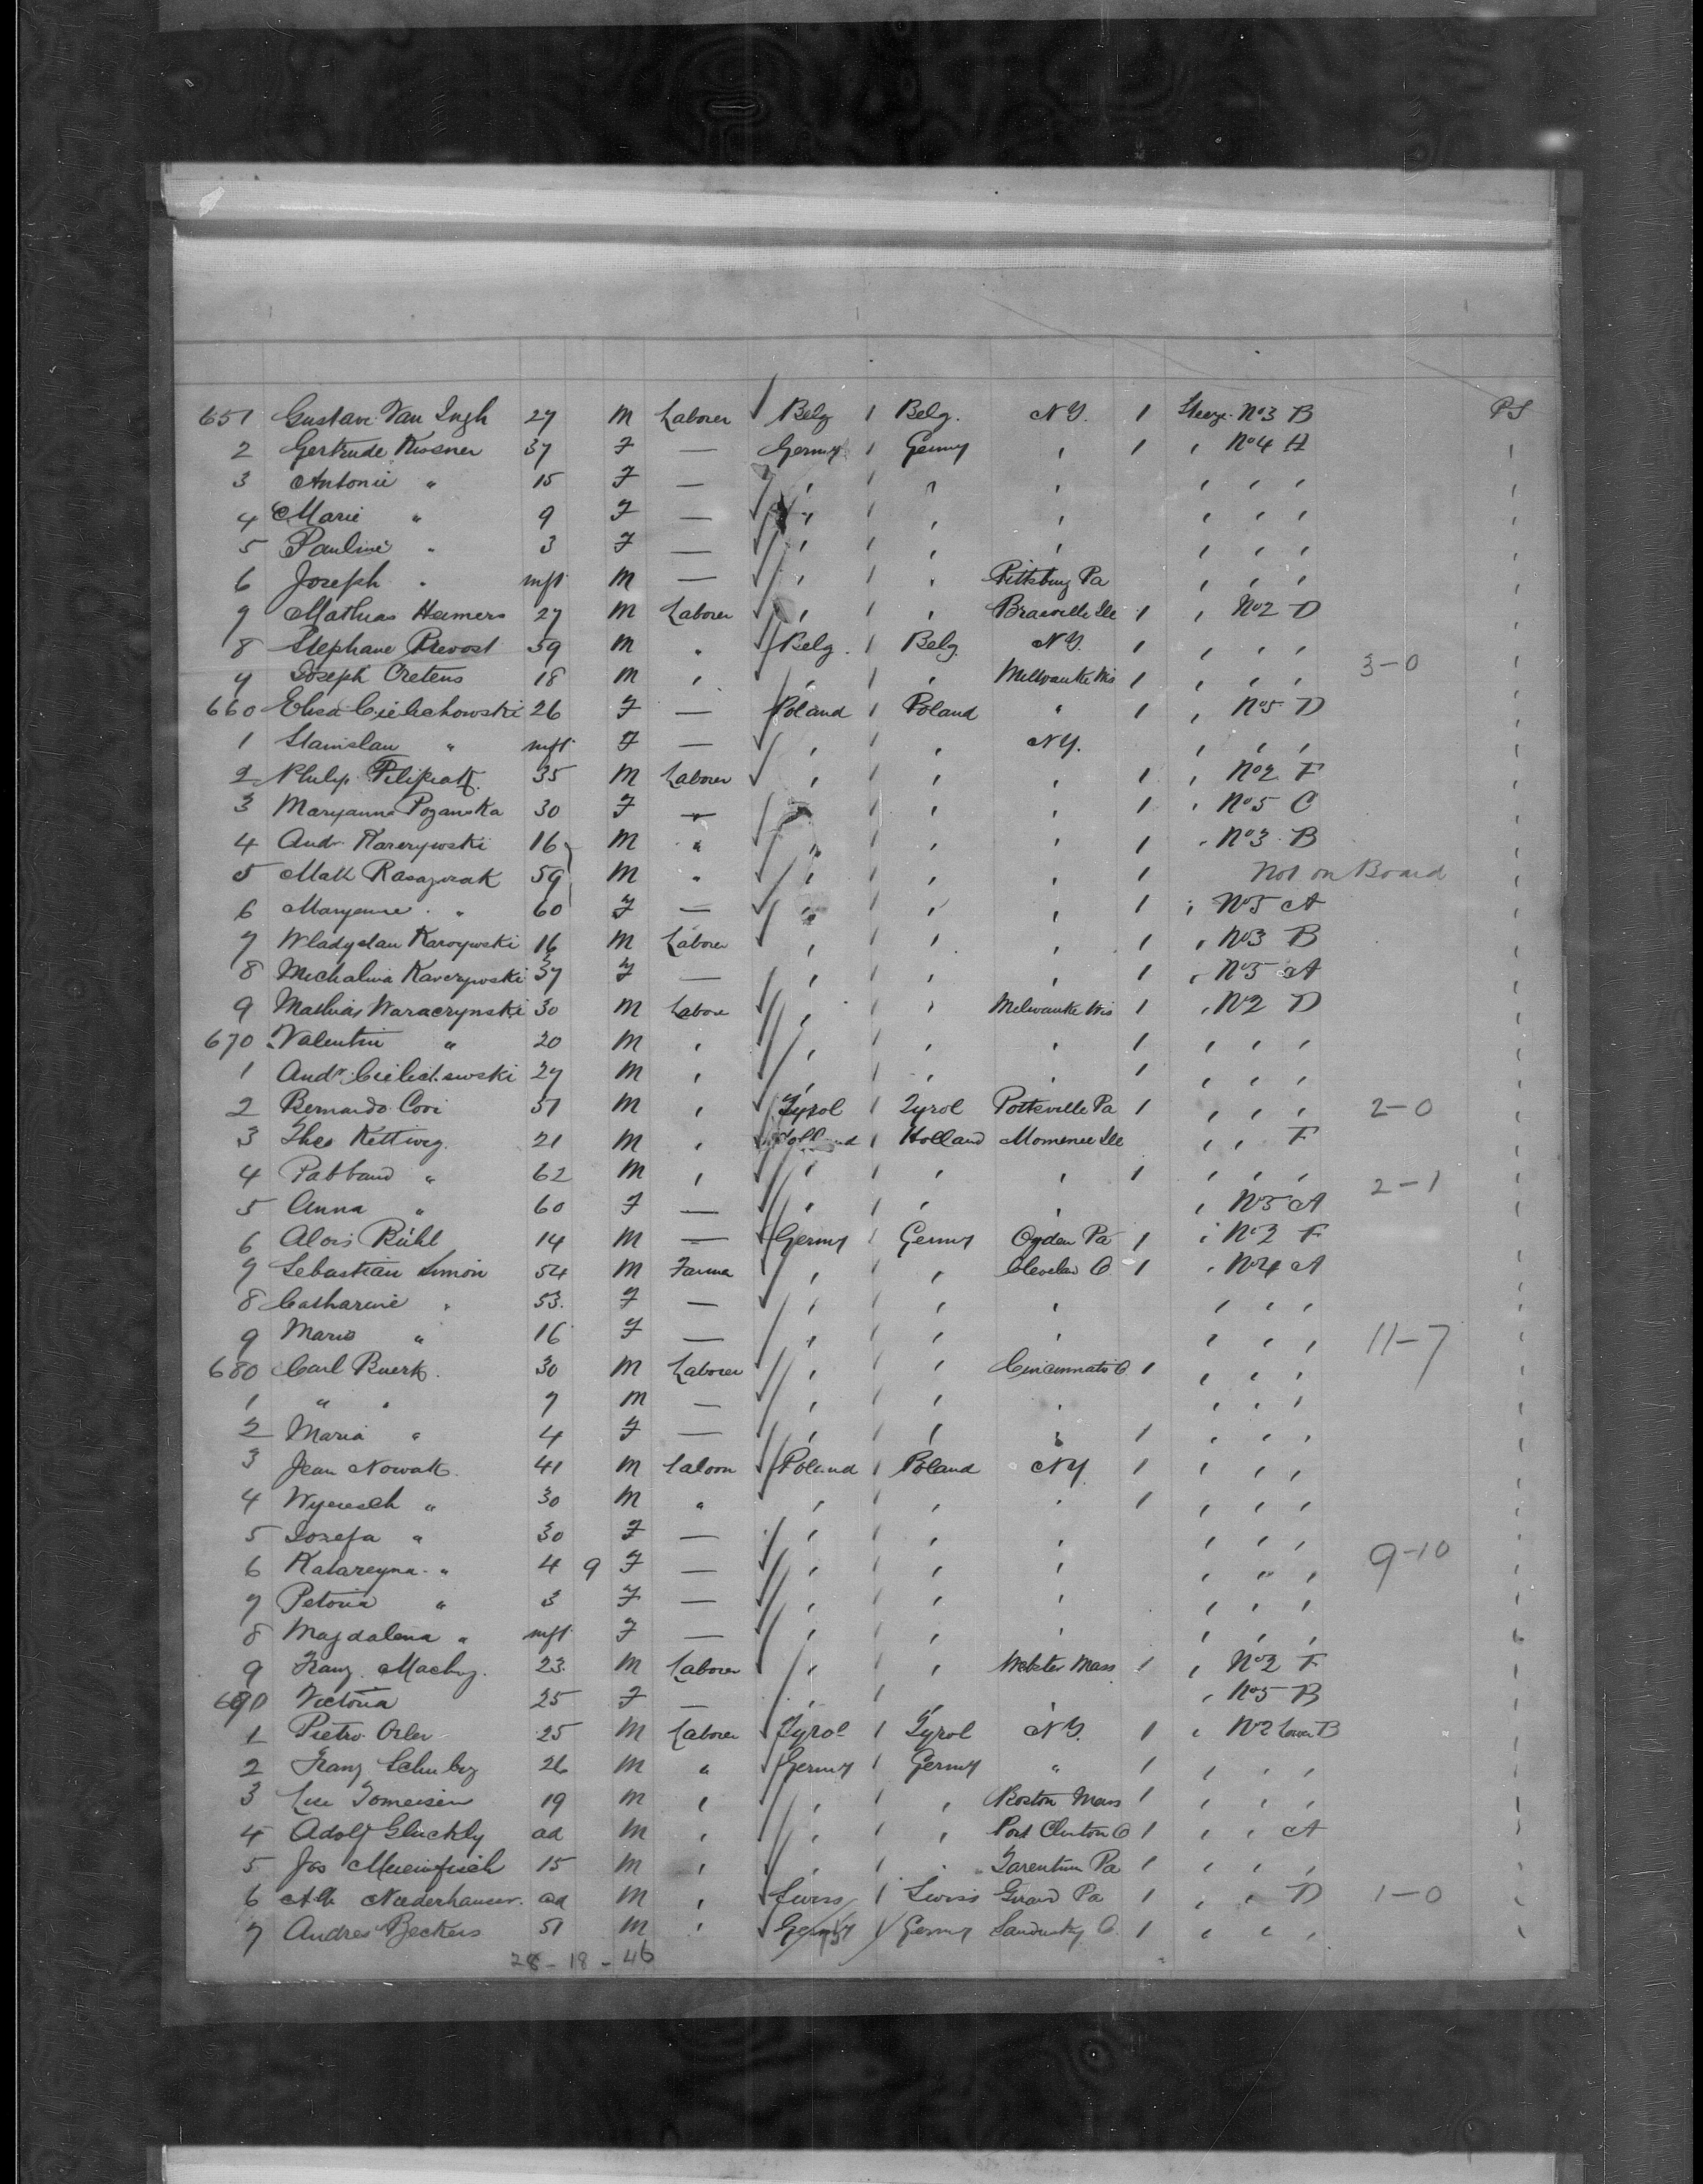 651 Gustave Van Ingh 27 M Laborer Belg 1 Belg. N.Y. 1 Steerge No3 B PS
2 Gertrude Kissner 37 F — Germy 1 Germy " 1 " No4 H
3 Antonie " 15 F — " " " " " "
4 Marie " 9 F — " " " " " "
5 Pauline " 3 F — " " " " " "
6 Joseph " inft M — " " Pittsburg Pa " " "
7 Mathias Hemers 27 M Laborer " " Ille 1 " No2 D
8 Stephane Prevost 59 M " Belg. 1 Belg. N.Y. 1 " " "
9 Joseph Cretens 18 M " " " Milwauke Wis 1 " " " 3-0
660 Elisa Cielichowski 26 F — Poland 1 Poland " 1 " No5 D
1 Stanislau " inft F — " " N.Y. " " "
2 Philip Filipiak 35 M Laborer " " " 1 " No2 F
3 Maryanna Poganska 30 F — " " " 1 " No5 C
4 Andr 16 M " " " " 1 " No3 B
5 Math 59 M " " " " 1 Not on Board
6 Maryanne " 60 F — " " " 1 " No5 A
7 Wladyslau 16 M Laborer " " " 1 " No3 B
8 Michalina 37 F — " " " 1 " No5 A
9 Mathias Waraczynski 30 M Labore " " Milwauke Wis 1 " No2 D
670 Valentin " 20 M " " " " 1 " " "
1 Andr 27 M " " " " 1 " " "
2 Bernardo Covi 51 M " Tyrol 1 Tyrol Pottsville Pa 1 " " " 2-0
3 Theo Kettweg 21 M " Holland Holland Momence Ille " " F
4 " 62 M " " " " 1 " " "
5 Anna " 60 F — " " " " No5 A 2-1
6 Alois Rühl 14 M — Germy Germy Ogden Pa 1 " No2 F
7 Sebastian Simon 54 M Farmer " " Clevelan O. 1 " No4 A
8 Catharine " 53 F — " " " " " "
9 Maria " 16 F — " " " " " " 11-7
680 Carl Buerk 30 M Laborer " " Cincinnati O 1 " " "
1 " " 7 M — " " " " " "
2 Maria " 4 F — " " " 1 " " "
3 Jean Nowak 41 M Laborer Poland 1 Poland N.Y. 1 " " "
4 " 30 M " " " " 1 " " "
5 Josefa " 30 F — " " " " " "
6 Katarzyna " 4 9 F — " " " " " " 9-10
7 " 3 F — " " " " " "
8 Magdalena " inft F — " " " " " "
9 Franz 23 M Laborer " " Webster Mass 1 " No2 F
690 Victoria 25 F — " " " " No5 B
1 Pietro Orler 25 M Laborer Tyrol 1 Tyrol N.Y. 1 " No2 Lower B
2 Franz 26 M " Germy Germy " 1 " " "
3 19 M " " " Boston Mass 1 " " "
4 Adolf Gluckly ad M " " " Port Clinton O 1 " " A
5 Jos 15 M " " " Tarentum Pa 1 " " "
6 Alb Niederhauser ad M " Swiss 1 Swiss Girard Pa 1 " " D 1-0
7 Andres Beckers 51 M " Germy 1 Germy Sandusky O. 1 " " "
28-18-46